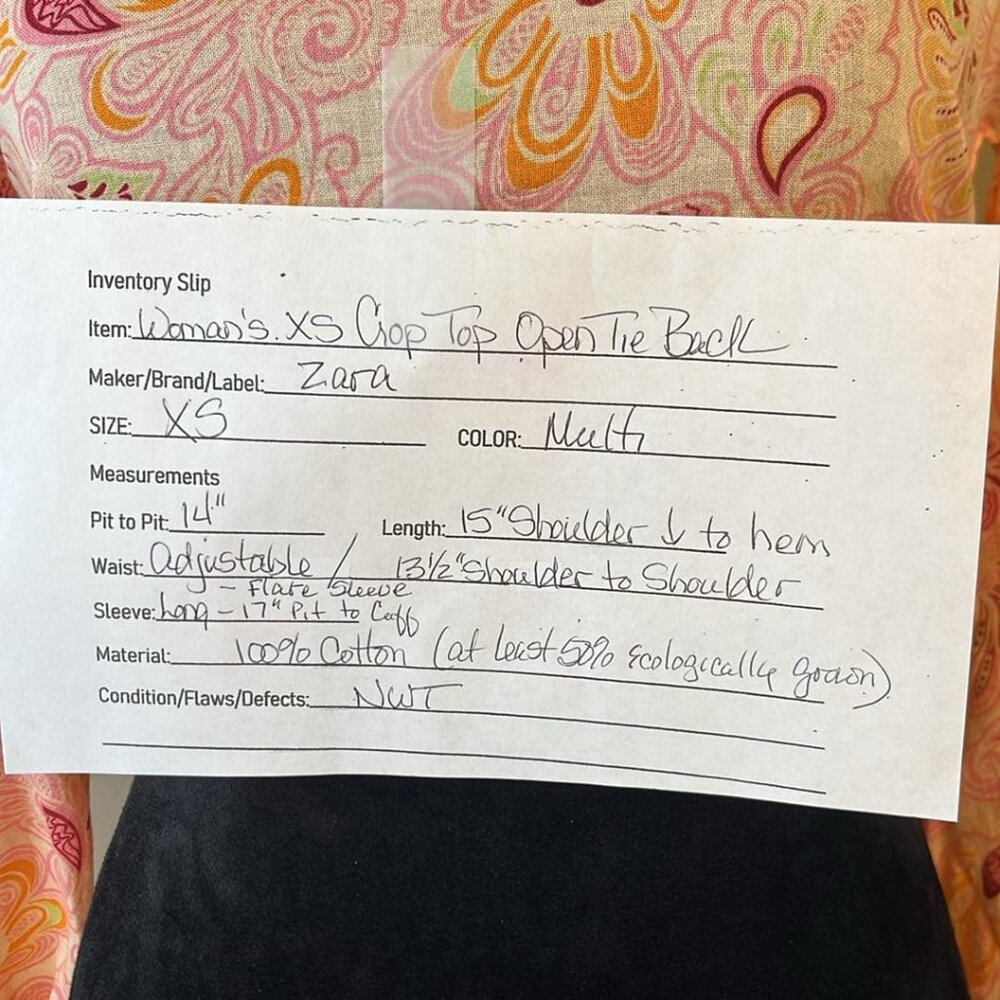 Inventory Slip
Item: Woman's. XS Crop Top Open Tie Back
Maker/Brand/Label: Zara
SIZE: XS COLOR: Multi
Measurements
Pit to Pit: 14" Length: 15" Shoulder ↓ to hem
Waist: Adjustable / 13 1/2" Shoulder to Shoulder
- Flare Sleeve
Sleeve: Long - 17" Pit to Cuff
Material: 100% Cotton (at least 50% Ecologically grown)
Condition/Flaws/Defects: NWT